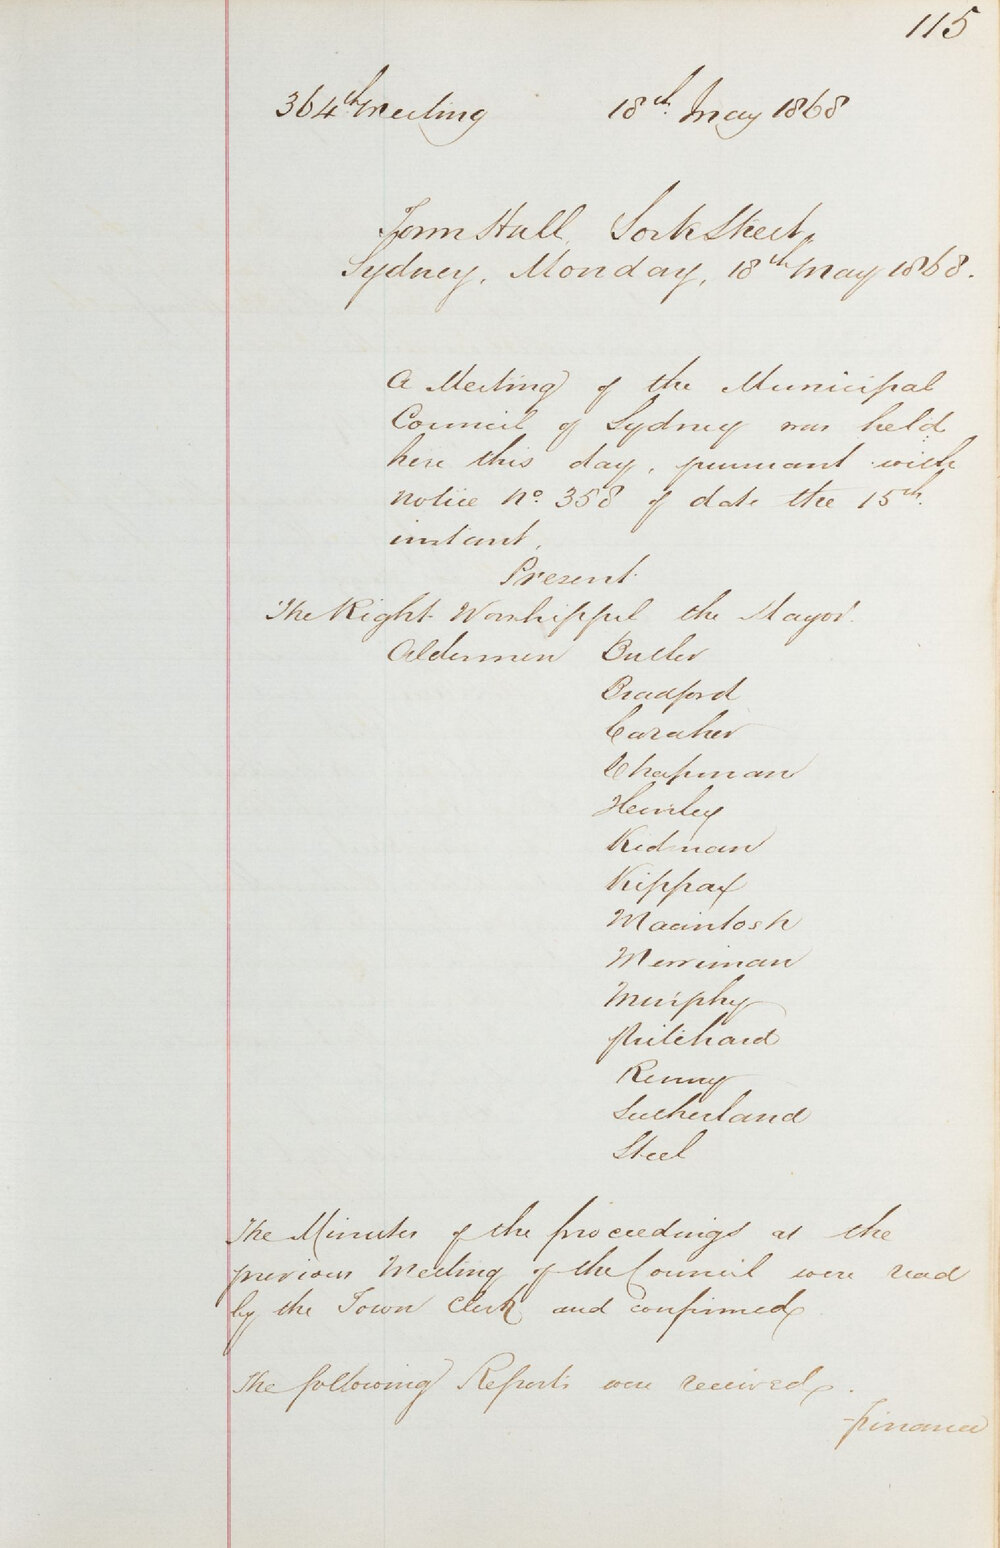 115
364th Meeting 18th May 1868
Town Hall, York Street,
Sydney, Monday, 18th May 1868.
A Meeting of the Municipal
Council of Sydney was held
here this day, pursuant with
notice No. 358 of date the 15th
instant.
Present
The Right Worshipful the Mayor
Aldermen Butler
Bradford
Caraher
Chapman
Hurley
Kidman
Kippax
Macintosh
Merriman
Murphy
Pritchard
Renny
Sutherland
Steel
The Minutes of the proceedings at the
previous Meeting of the Council were read
by the Town Clerk and confirmed
The following Reports were received.
Finance